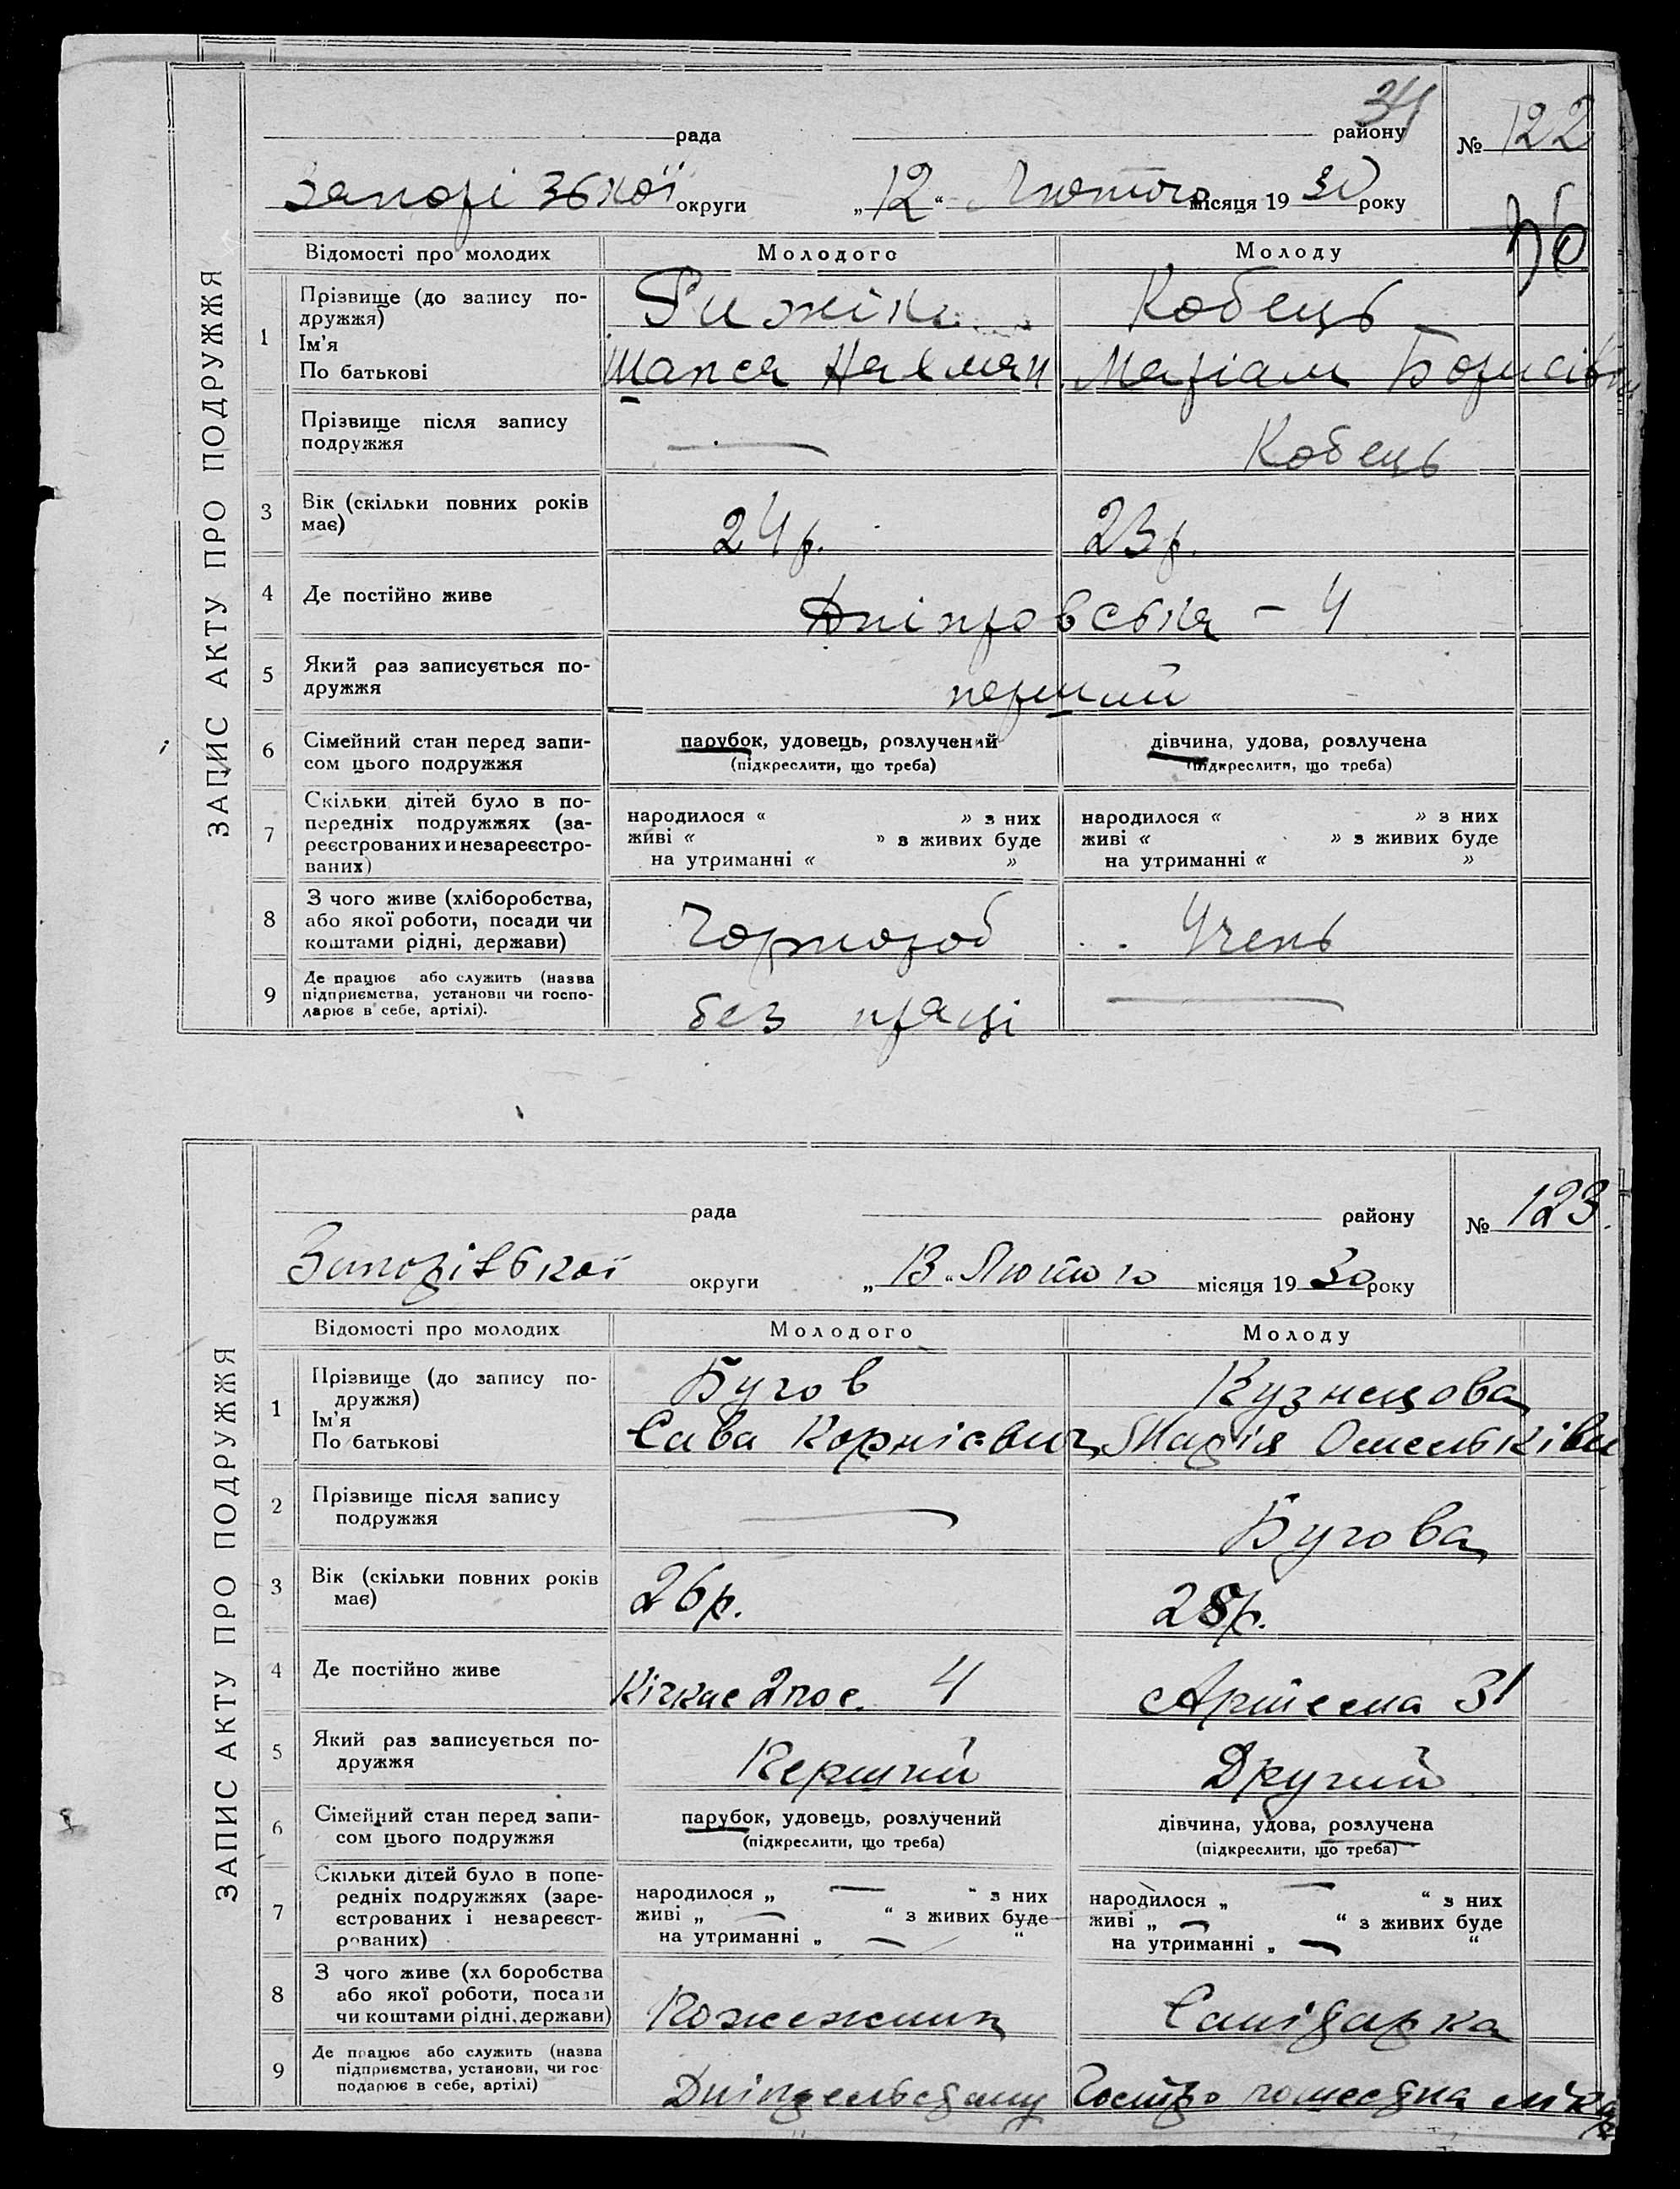 34
рада району № 122
Запорізької округи „12“ Лютого місяця 1930 року
36
ЗАПИС АКТУ ПРО ПОДРУЖЖЯ
Відомості про молодих Молодого Молоду
1 Прізвище (до запису по-
дружжя)
Ім'я
По батькові
Рижік Кобець
Шапся Нахман. Маріам Борисівна
Прізвище після запису
подружжя
— Кобець
3 Вік (скільки повних років
має)
24 р. 23 р.
4 Де постійно живе Дніпровська - 4
5 Який раз записується по-
дружжя
перший
6 Сімейний стан перед запи-
сом цього подружжя
парубок, удовець, розлучений дівчина, удова, розлучена
(підкреслити, що треба) (підкреслити, що треба)
7 Скільки дітей було в по-
передніх подружжях (за-
реєстрованих и незареєстро-
ваних)
народилося « » з них народилося « » з них
живі « » з живих буде живі « » з живих буде
на утриманні « » на утриманні « »
8 З чого живе (хліборобства,
або якої роботи, посади чи
коштами рідні, держави)
Чорнороб Учень
9 Де працює або служить (назва
підприємства, установи чи госпо-
дарює в себе, артілі).
без праці —
рада району № 123.
Запорізької округи „13“ Лютого місяця 1930 року
ЗАПИС АКТУ ПРО ПОДРУЖЖЯ
Відомості про молодих Молодого Молоду
1 Прізвище (до запису по-
дружжя)
Ім'я
По батькові
Бугов Кузнецова
Сава Корнієвич Марія Омельківн
2 Прізвище після запису
подружжя
— Бугова
3 Вік (скільки повних років
має)
26 р. 28 р.
4 Де постійно живе Кічкас 2 пос. 4 Артема 31
5 Який раз записується по-
дружжя
Перший Другий
6 Сімейний стан перед запи-
сом цього подружжя
парубок, удовець, розлучений дівчина, удова, розлучена
(підкреслити, що треба) (підкреслити, що треба)
7 Скільки дітей було в попе-
редніх подружжях (заре-
єстрованих і незареєст-
рованих)
народилося „ — “ з них народилося „ — “ з них
живі „ — “ з живих буде живі „ — “ з живих буде
на утриманні „ — “ на утриманні „ — “
8 З чого живе (хл боробства
або якої роботи, посади
чи коштами рідні, держави)
Пожежник Санідарка
9 Де працює або служить (назва
підприємства, установи, чи гос-
подарює в себе, артілі)
Дніпрельстану